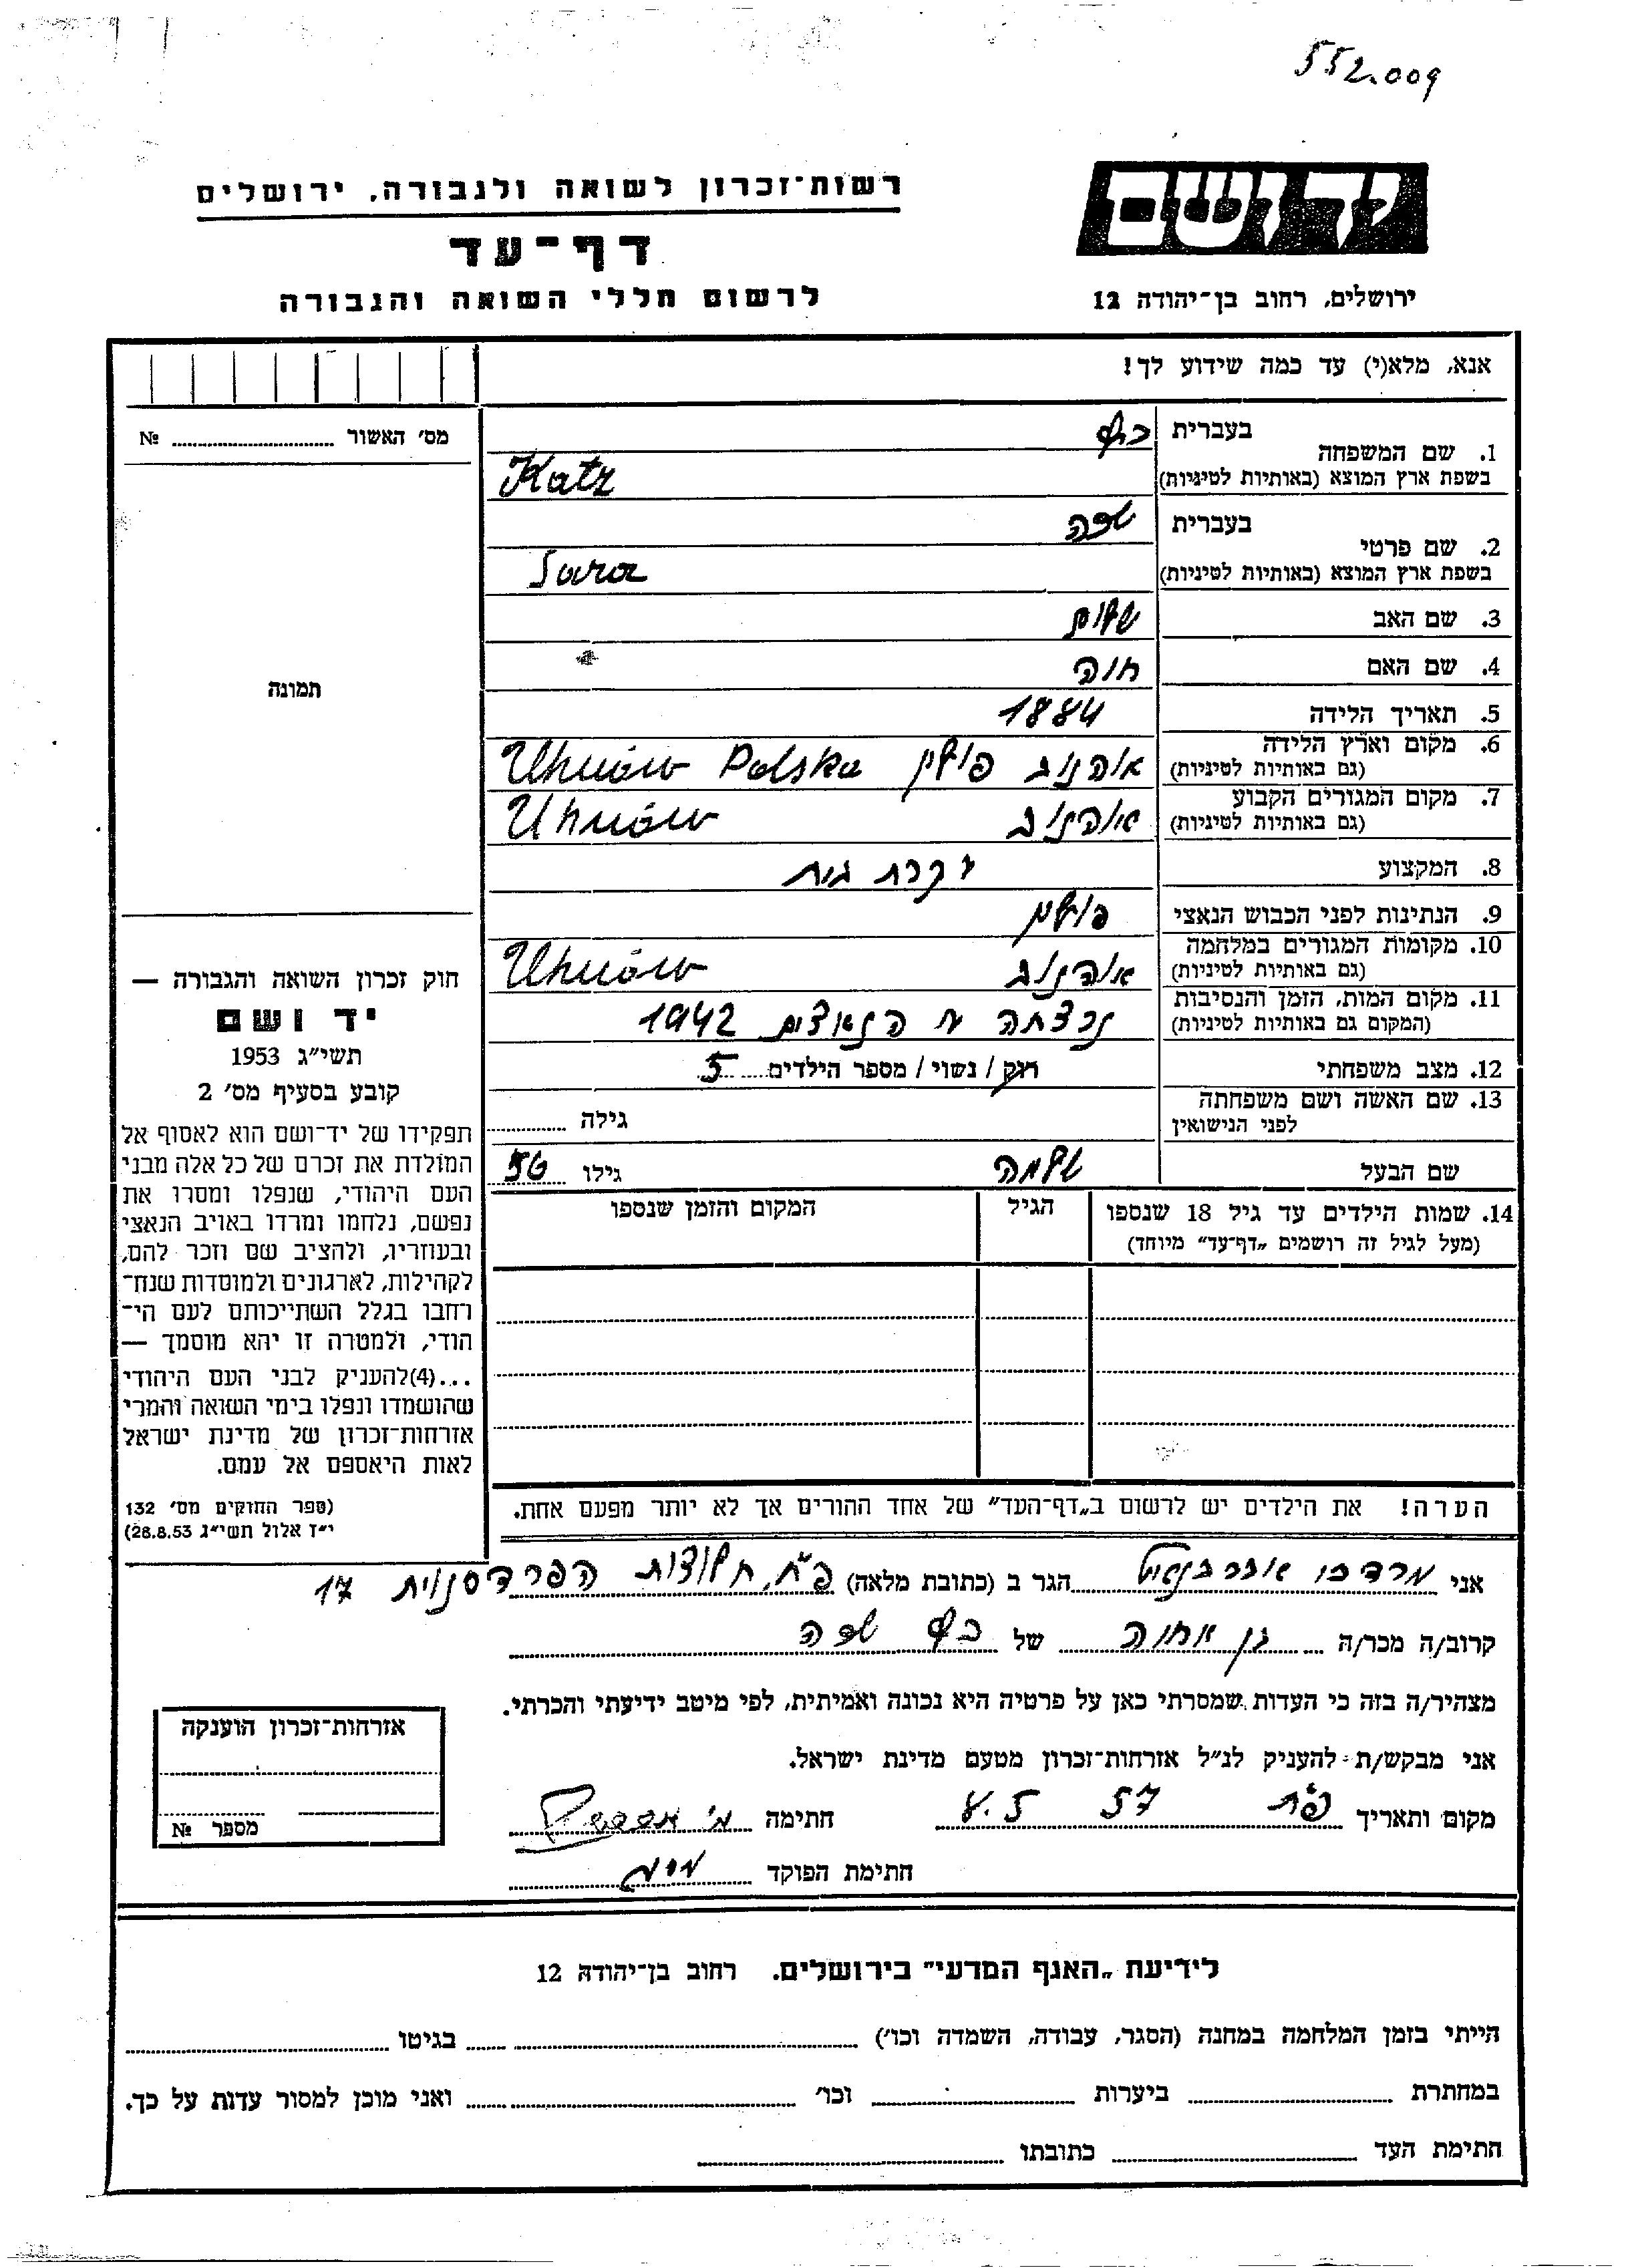 552.009
יד ושם
רשות־זכרון לשואה ולגבורה, ירושלים
דף־עד
לרשום חללי השואה והגבורה
ירושלים, רחוב בן־יהודה 12
אנא, מלא(י) עד כמה שידוע לך!
מס׳ האשור № ........
תמונה
חוק זכרון השואה והגבורה —
יד ושם
תשי״ג 1953
קובע בסעיף מס׳ 2
תפקידו של יד־ושם הוא לאסוף אל
המולדת את זכרם של כל אלה מבני
העם היהודי, שנפלו ומסרו את
נפשם, נלחמו ומרדו באויב הנאצי
ובעוזריו, ולהציב שם וזכר להם,
לקהילות, לארגונים ולמוסדות שנח־
רחבו בגלל השתייכותם לעם הי־
הודי, ולמטרה זו יהא מוסמך —
...(4)להעניק לבני העם היהודי
שהושמדו ונפלו בימי השואה והמרי
אזרחות־זכרון של מדינת ישראל
לאות היאספם אל עמם.
(ספר החוקים מס׳ 132
י״ז אלול תשי״ג 28.8.53)
1. שם המשפחה
בעברית כץ
בשפת ארץ המוצא (באותיות לטיניות) Katz
2. שם פרטי
בעברית שרה
בשפת ארץ המוצא (באותיות לטיניות) Sara
3. שם האב שלום
4. שם האם חוה
5. תאריך הלידה 1884
6. מקום וארץ הלידה אוהנוב פולין Uhnów Polska
(גם באותיות לטיניות)
7. מקום המגורים הקבוע אוהנוב Uhnów
(גם באותיות לטיניות)
8. המקצוע עקרת בית
9. הנתינות לפני הכבוש הנאצי פולין
10. מקומות המגורים במלחמה אוהנוב Uhnów
(גם באותיות לטיניות)
11. מקום המות, הזמן והנסיבות נרצחה ע הנאצים 1942
(המקום גם באותיות לטיניות)
12. מצב משפחתי רוק / נשוי / מספר הילדים 5
13. שם האשה ושם משפחתה גילה
לפני הנישואין
שם הבעל שלמה גילו 56
14. שמות הילדים עד גיל 18 שנספו הגיל המקום והזמן שנספו
(מעל לגיל זה רושמים „דף־עד״ מיוחד)
הערה! את הילדים יש לרשום ב„דף־העד״ של אחד ההורים אך לא יותר מפעם אחת.
אני מרדכי הגר ב (כתובת מלאה) פ״ת, חלוצות הפרדסנות 17
קרוב/ה מכר/ה בן אחיה של כץ שרה
מצהיר/ה בזה כי העדות שמסרתי כאן על פרטיה היא נכונה ואמיתית, לפי מיטב ידיעתי והכרתי.
אני מבקש/ת להעניק לנ״ל אזרחות־זכרון מטעם מדינת ישראל.
מקום ותאריך פ״ת 8.5 57 חתימה
חתימת הפוקד
אזרחות־זכרון הוענקה
מספר №
לידיעת „האגף המדעי״ בירושלים. רחוב בן־יהודה 12
הייתי בזמן המלחמה במחנה (הסגר, עבודה, השמדה וכו׳) בגיטו
במחתרת ביערות וכו׳ ואני מוכן למסור עדות על כך.
חתימת העד כתובתו